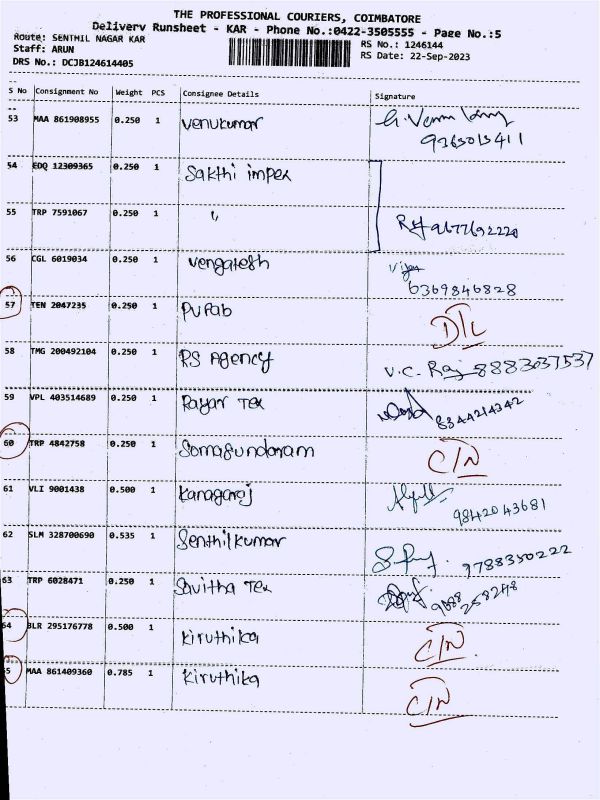 THE PROFESSIONAL COURIERS, COIMBATORE
Delivery Runsheet - KAR - Phone No.:0422-3505555 - Page No.:5
Route: SENTHIL NAGAR KAR
Staff: ARUN
DRS No.: DCJB124614405
RS No.: 1246144
RS Date: 22-Sep-2023
S No Consignment No Weight PCS Consignee Details Signature
53 MAA 861908955 0.250 1 Venukumar
9365015411
54 EDQ 12309365 0.250 1 Sakthi impex
55 TRP 7591067 0.250 1 " 9677692220
56 CGL 6019034 0.250 1 Vengatesh
6369846828
57 TEN 2047235 0.250 1 Purab D/L
58 TMG 200492104 0.250 1 RS Agency V.C. Raj 8883037537
59 VPL 403514689 0.250 1 Rayar Tex 8344214342
60 TRP 4842758 0.250 1 Somasundaram C/N
61 VLI 9001438 0.500 1 Kanagaraj
9842043681
62 SLM 328700690 0.535 1 Senthilkumar 9788350222
63 TRP 6028471 0.250 1 Savitha Tex 9688 258248
64 BLR 295176778 0.500 1 Kiruthika C/N
65 MAA 861409360 0.785 1 Kiruthika C/N